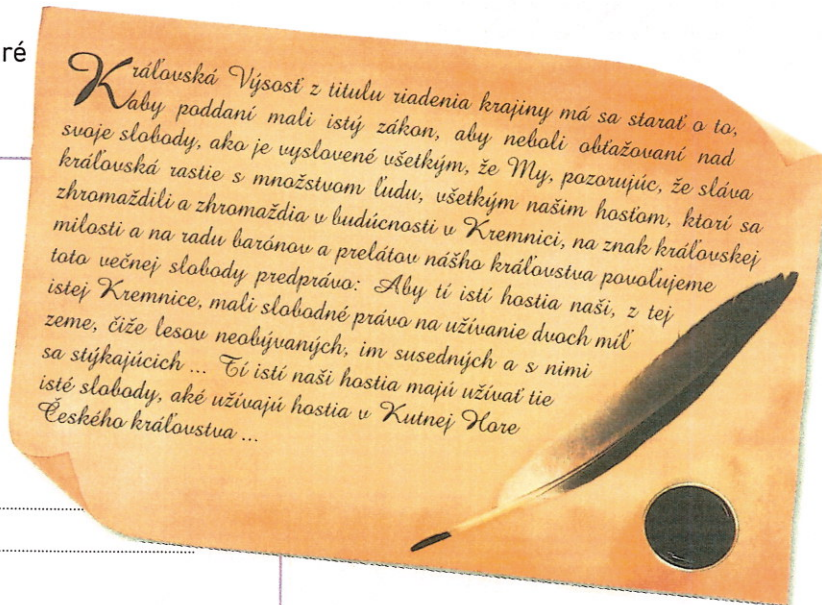 ré
Kráľovská Výsosť z titulu riadenia krajiny má sa starať o to,
aby poddaní mali istý zákon, aby neboli obťažovaní nad
svoje slobody, ako je vyslovené všetkým, že My, pozorujúc, že sláva
kráľovská rastie s množstvom ľudu, všetkým našim hosťom, ktorí sa
zhromaždili a zhromaždia v budúcnosti v Kremnici, na znak kráľovskej
milosti a na radu barónov a prelátov nášho kráľovstva povoľujeme
toto večnej slobody predprávo: Aby tí istí hostia naši, z tej
istej Kremnice, mali slobodné právo na užívanie dvoch míľ
zeme, čiže lesov neobývaných, im susedných a s nimi
sa stýkajúcich ... Tí istí naši hostia majú užívať tie
isté slobody, aké užívajú hostia v Kutnej Hore
Českého kráľovstva ...